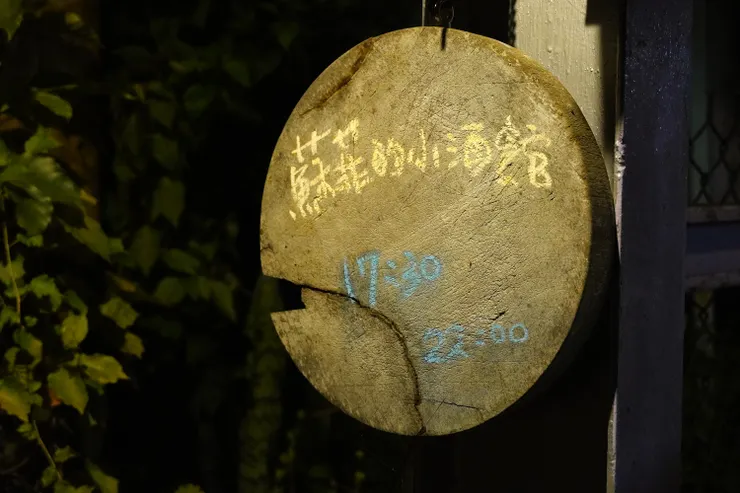 蘇菲的小酒館
17:30
22:00